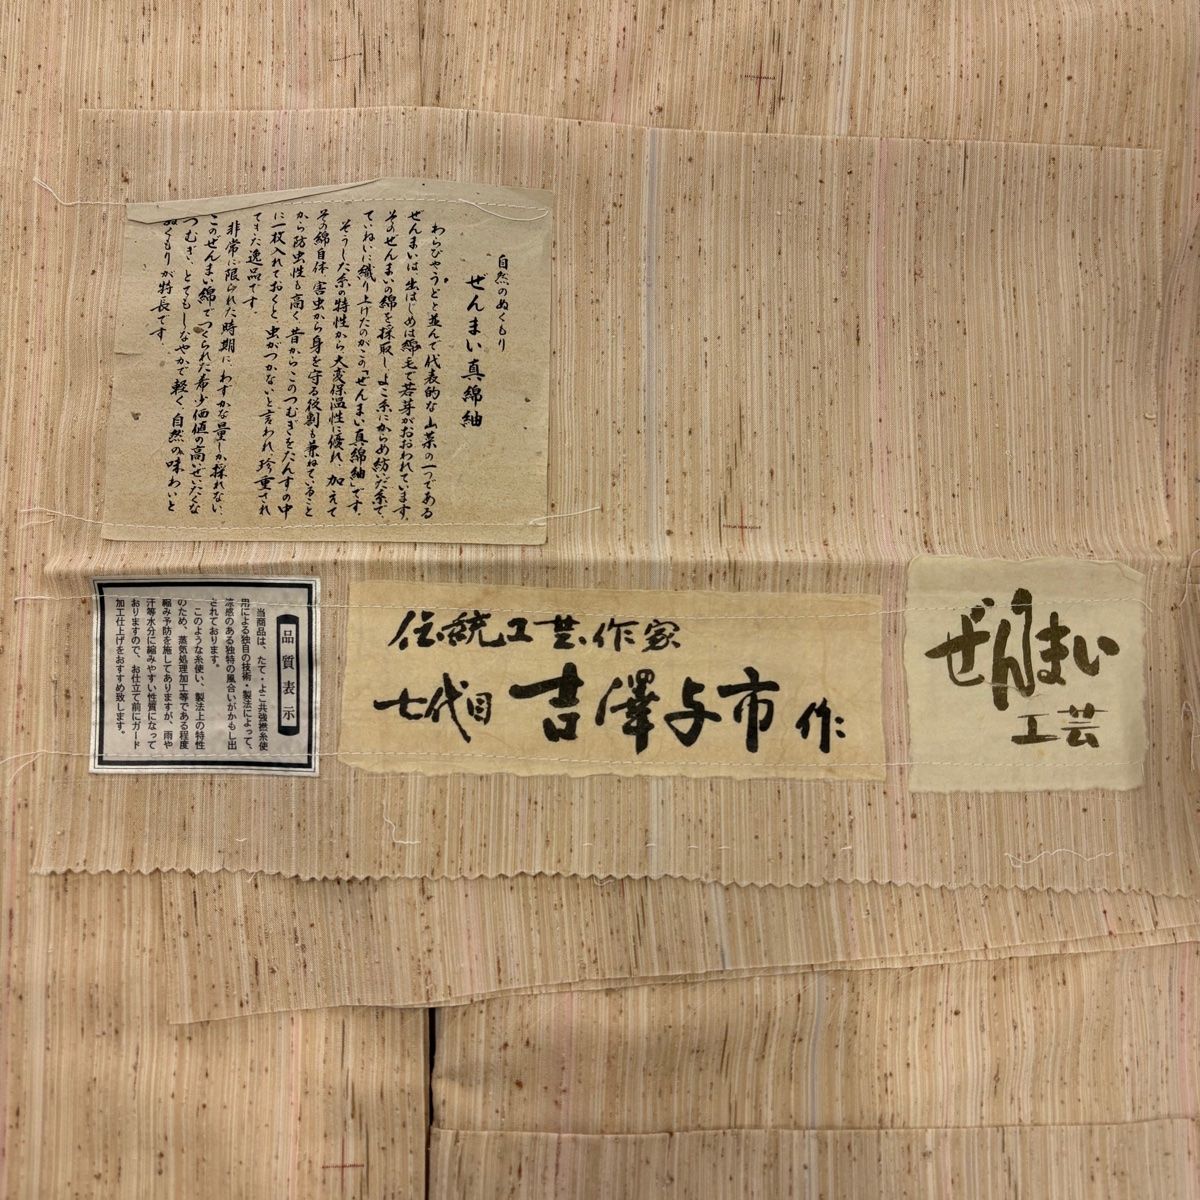 自然のぬくもり
ぜんまい真綿紬
わらびやうどと並んで代表的な山菜の一つである
ぜんまいは、出はじめは綿毛で若芽がおおわれています。
そのぜんまいの綿を採取し、よこ糸にからめ紡いだ糸で、
ていねいに織り上げたのがこの「ぜんまい真綿紬」です。
そうした糸の特性から、大変保温性に優れ、加えて
その綿自体、害虫から身を守る役割も兼ねていること
から防虫性も高く、昔からこのつむぎをたんすの中
に一枚入れておくと、虫がつかないと言われ、珍重され
てきた逸品です。
非常に限られた時期に、わずかな量しか採れない、
このぜんまい綿でつくられた希少価値の高いぜいたくな
つむぎ、とてもしなやかで軽く、自然の味わいと
ぬくもりが特長です。
品質表示
当商品は、たて・よこ共強撚糸使
用による独自の技術・製法によって、
涼感のある独特の風合いがかもし出
されております。
このような糸使い、製法上の特性
のため、蒸気処理加工等である程度
縮み予防を施してありますが、雨や
汗等水分に縮みやすい性質になって
おりますので、お仕立て前にガード
加工仕上げをおすすめ致します。
伝統工芸作家
七代目 吉澤与市 作
ぜんまい
工芸